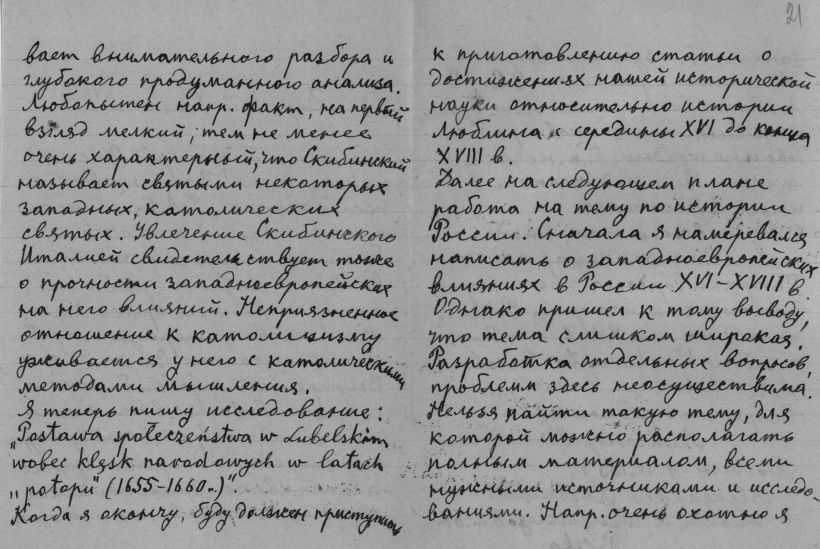 21
вает внимательного разбора и
глубокого продуманного анализа.
Любопытен напр. факт, на первый
взгляд мелкий, тем не менее
очень характерный, что Скибинский
называет святыми некоторых
западных, католических
святых. Увлечение Скибинского
Италией свидетельствует тоже
о прочности западноевропейских
на него влияний. Неприязненное
отношение к католицизму
уживается у него с католическими
методами мышления.
Я теперь пишу исследование:
„Postawa społeczeństwa w Lubelskim
wobec klęsk narodowych w latach
„potopu" (1655-1660.)".
Когда я окончу, буду должен приступить
к приготовлению статьи о
достижениях нашей исторической
науки относительно истории
Люблина с середины XVI до конца
XVIII в.
Далее на следующем плане
работа на тему по истории
России. Сначала я намеревался
написать о западноевропейских
влияниях в России XVI-XVIII в.
Однако пришел к тому выводу,
что тема слишком широкая.
Разработка отдельных вопросов,
проблем здесь неосуществима.
Нельзя найти такую тему, для
которой можно располагать
полным материалом, всеми
нужными источниками и исследо-
ваниями. Напр. очень охотно я